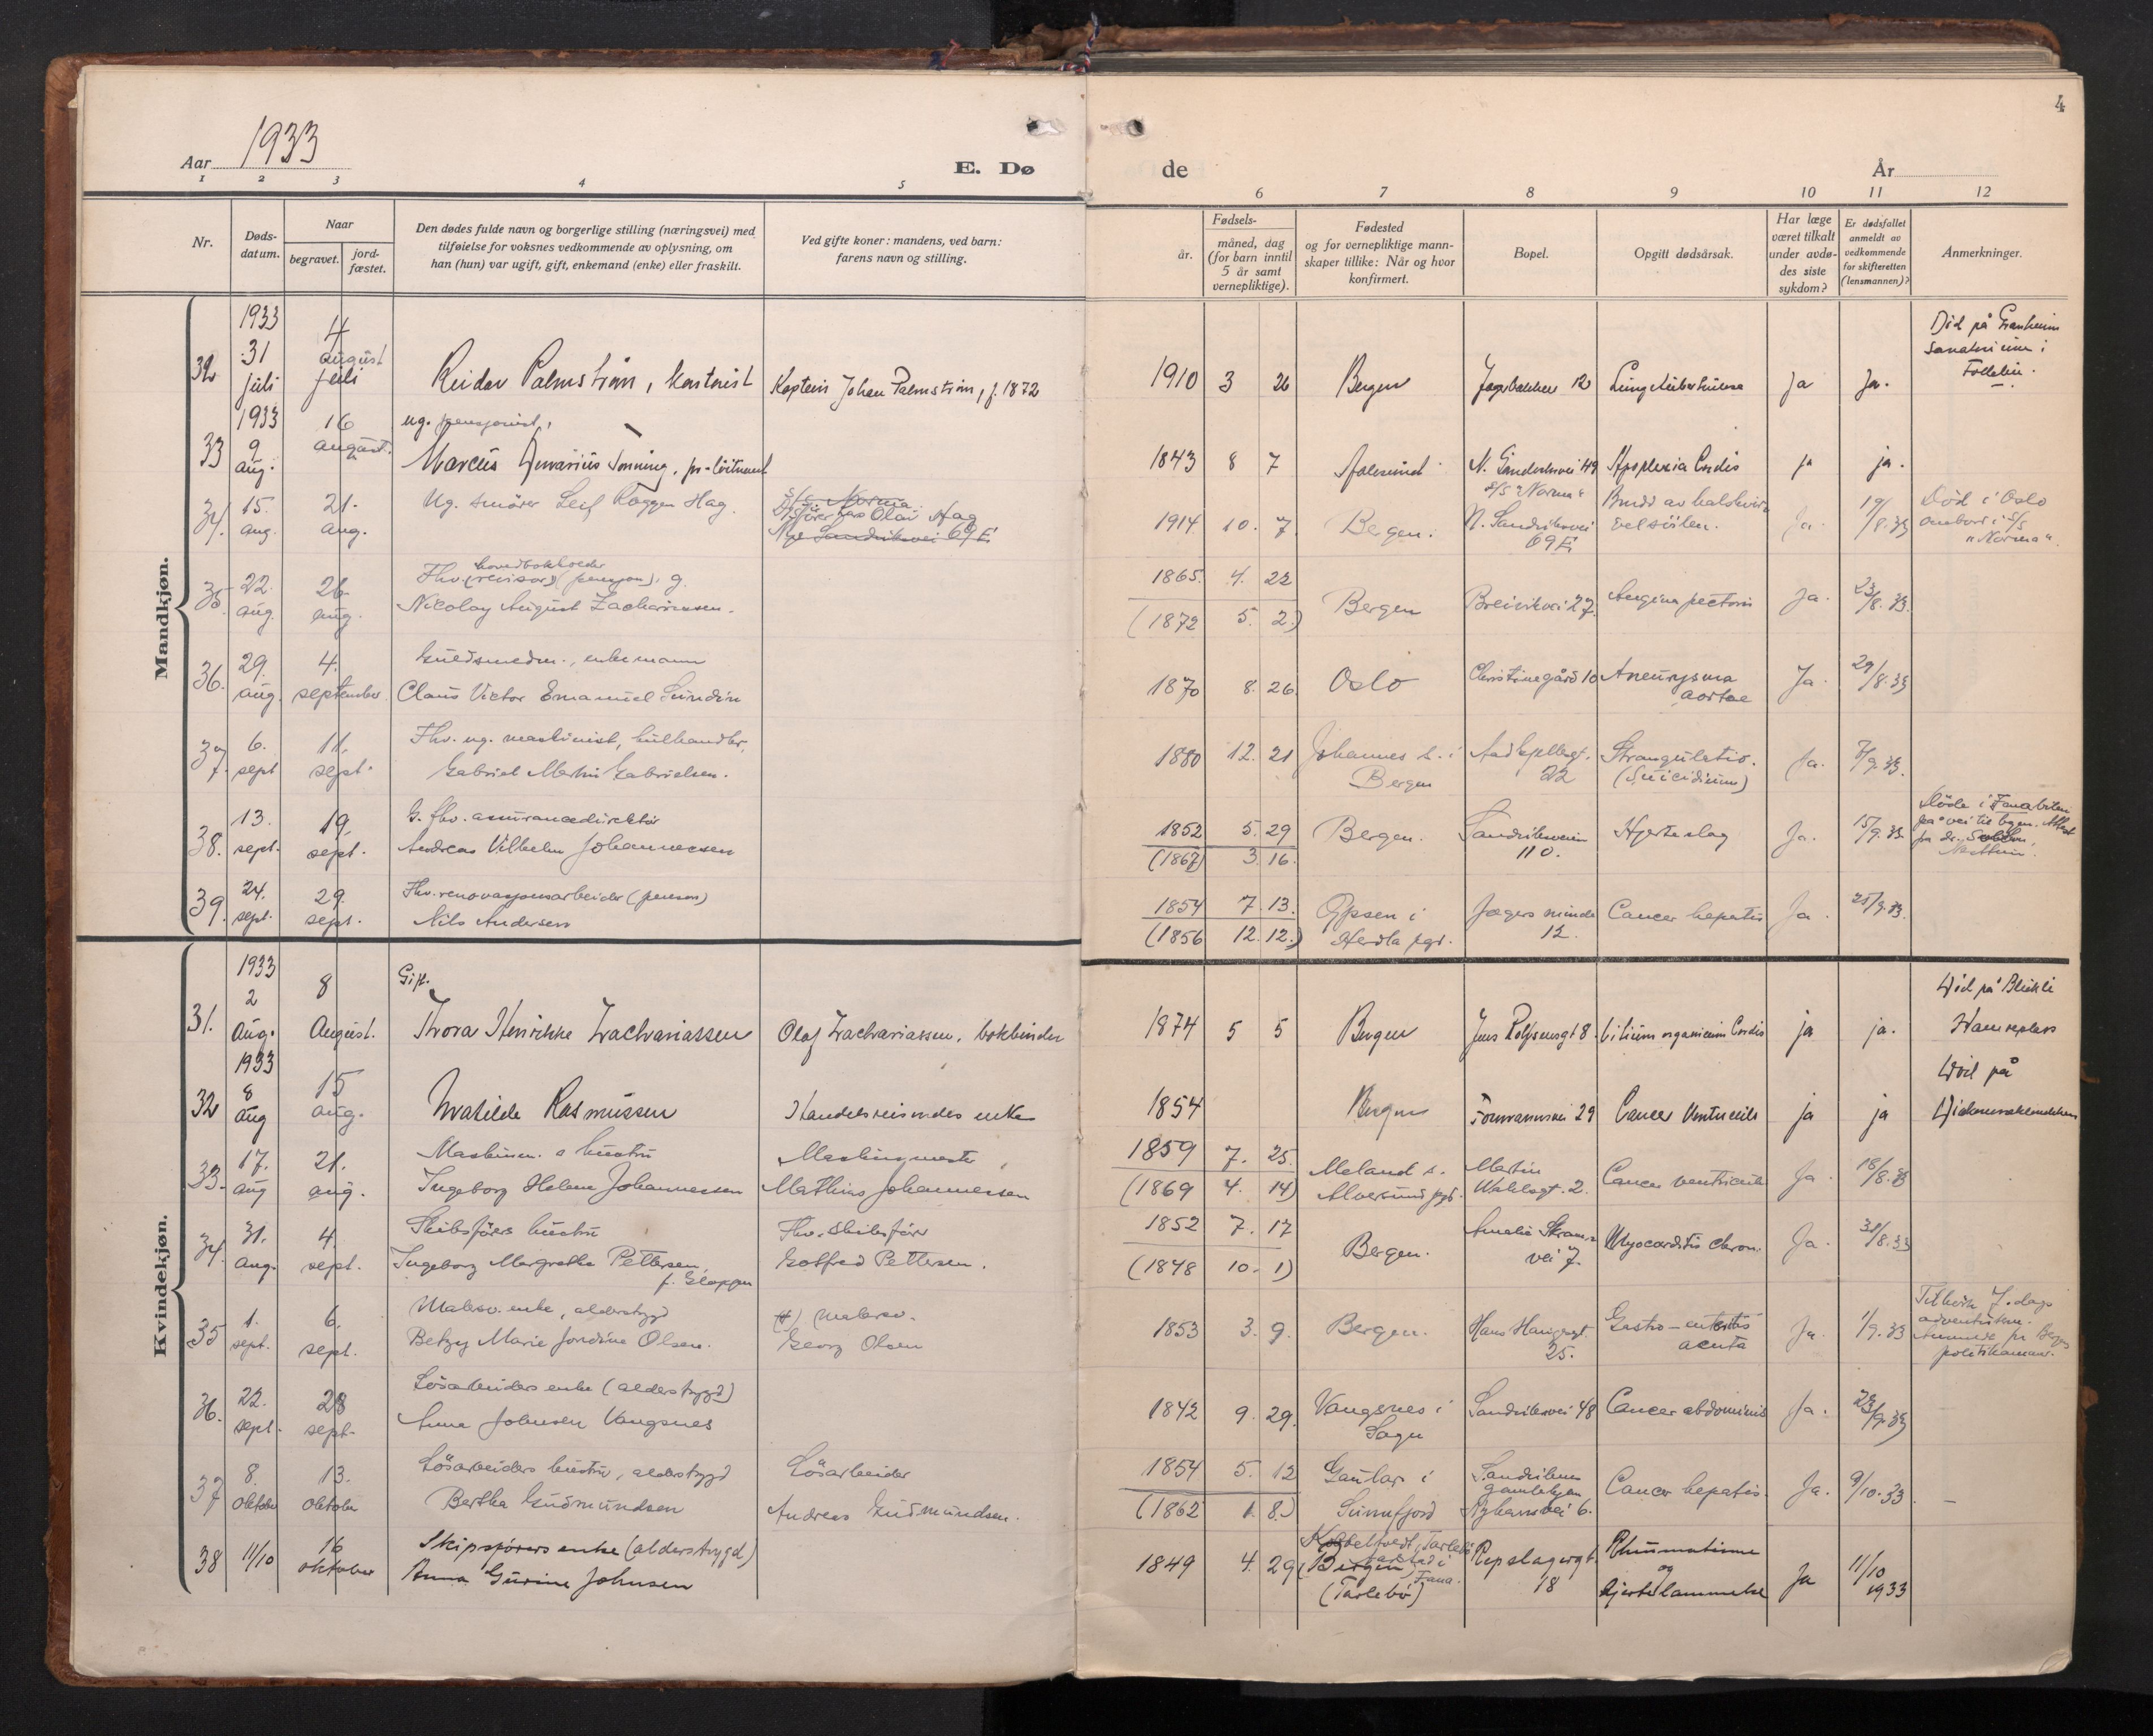 4
Aar 1933
E. Dø
de
År
1 2 3 4 5 6 7 8 9 10 11 12
Nr.
Døds-
datum.
Naar
begravet.
jord-
fæstet.
Den dødes fulde navn og borgerlige stilling (næringsvei) med
tilføielse for voksnes vedkommende av oplysning, om
han (hun) var ugift, gift, enkemand (enke) eller fraskilt.
Ved gifte koner: mandens, ved barn:
farens navn og stilling.
Fødsels-
år.
måned, dag
(for barn inntil
5 år samt
vernepliktige).
Fødested
og for vernepliktige mann-
skaper tillike: Når og hvor
konfirmert.
Bopel.
Opgitt dødsårsak.
Har læge
været tilkalt
under avdø-
des siste
sykdom?
Er dødsfallet
anmeldt av
vedkommende
for skifteretten
(lensmannen)?
Anmerkninger.
Mandkjøn.
32 1933 31 juli 4 august juli
Reidar Palmstrøm, kontorist Kaptein Johan Palmstrøm, f. 1872
1910 3 26 Bergen 12 Lungetuberkulose ja Ja.
Død på Granheim
sanatorium i
Follebu.
33 1933 9 aug. 16 august.
ug. pensjonist,
Marcus Tonning, pr.-løitnant
1843 8 7 Aalesund N. Sandviksvei 49 Apoplexia Cordis ja ja.
34. 15. aug. 21. aug.
Ug. smører Leif Roggen Hag.
S/S Norma
Olav Hag
Nye Sandviksvei 69 E
1914 10. 7. Bergen. S/S "Norma" N. Sandviksvei 69 E
Brudd av halshvir-
velsöilen. Ja. 19/8.33
Död i Oslo
ombord i S/S
"Norma".
35. 22. aug. 26. aug.
Fhv. (revisor) hovedbokholder (pensjon). g.
Nicolay August Zachariassen.
1865. 4. 22
(1872 5. 2.)
Bergen Breiviksvei 27. Angina pectoris Ja. 23/8.33.
36. 29. aug. 4. september.
Gullsmedm., enkemann
Claus Victor Emanuel Sundin
1870 8. 26. Oslo Christinegård 10 Aneurysma
aortae Ja 29/8.33
37. 6. sept 11. sept.
Fhv. ug. maskinist, kulhandler,
Gabriel Martin Gabrielsen.
1880 12. 21 Johannes s. i
Bergen 22 Strangulatio.
(Suicidium) Ja. 7/9.33.
38. 13. sept. 19. sept.
G. fhv. assurancedirektör
Andreas Vilhelm Johannessen
1852 5. 29
(1867) 3. 16.
Bergen. Sandviksveien
110. Hjerteslag Ja. 15/9.33
Döde i Fanabilen
på vei til byen. Attest
fra dr.
Nesttun.
39. 24. sept. 29. sept.
Fhv. renovasjonsarbeider (pensjon)
Nils Andersen
1854 7. 13.
(1856 12. 12.)
i
Herdla pgd.
Jægers minde
12. Cancer hepatis Ja. 25/9.33.
Kvindekjøn.
31. 1933 2 Aug. 8 August.
Gift.
Thora Henrikke Zachariassen Olaf Zachariassen, bokbinder
1874 5 5 Bergen Jens Rolfsensgt 8. Vitium organicum Cordis ja ja.
Död på Blekeli
Hamreplass
32 1933 8 aug 15 aug.
Matilde Rasmussen Handelsreisendes enke
1854 Bergen Formannsvei 29 Cancer Ventriculi ja ja
Död på
33. 17. aug 21. aug.
Maskinm.s hustru Maskinmester
Ingeborg Helene Johannessen Mathias Johannessen
1859 7. 25.
(1869 4. 14)
Meland s.
Alversund pgd. Martin
Vahlsgt. 2. Cancer ventriculi Ja 18/8.33
34. 31. aug. 4. sept.
Skibsförers hustru Fhv. skibsförer
Ingeborg Margrethe Pettersen, Gotfred Pettersen.
f. Gloppen
1852 7. 17
(1848 10. 1)
Bergen. Amalie Skrams
vei 7. Myocarditis chron. Ja. 31/8.33
35 1. sept. 6. sept.
Malersv. enke, alderstrygd (†) malersv.
Betzy Marie Jordine Olsen. Georg Olsen
1853 3. 9. Bergen. Hans Haugesgt.
25. Gastro-enteritis
acuta Ja 1/9.33
Tilhörte 7. dags
adventistm.
Anmeldt fra Bergens
politikammer.
36. 22. sept. 28 sept.
Lösarbeiders enke (alderstrygd)
Anna Johnsen Vangsnes
1842 9. 29. Vangsnes i
Sogn Sandviksvei 48 Cancer abdominis Ja. 23/9.33
37 8. oktober 13. oktober
Lösarbeiders hustru, alderstrygd Lösarbeider
Bertha Gudmundsen Andreas Gudmundsen.
1854 5. 12
(1862 1. 8.)
Gaular i
Sunnfjord Sandviken
6. Cancer hepatis. Ja. 9/10.33 –
38 11/10 16 oktober
Skipsførers enke (alderstrygd)
Anna Gurine Johnsen
1849 4. 29 Bergen
Fana.
(Tarlebø) Repslagergt.
18 Rheumatisme
og
hjertelammelse Ja 11/10
1933